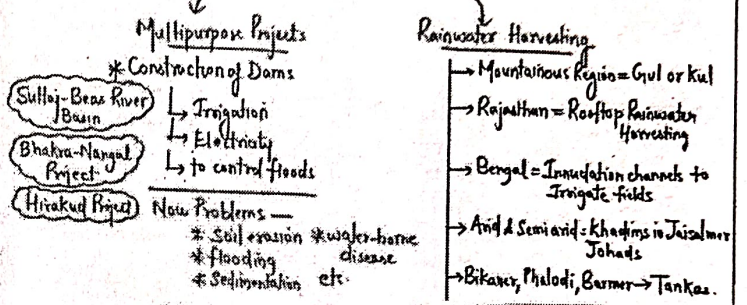 Multipurpose Projects
* Construction of Dams
Sutlej-Beas River
Basin
Bhakra-Nangal
Project
Hirakud Project
→ Irrigation
→ Electricity
→ to control floods
Now Problems —
* Soil erosion * water-borne
disease
* flooding
* Sedimentation etc.
Rainwater Harvesting
→ Mountainous Region = Gul or Kul
→ Rajasthan = Rooftop Rainwater
Harvesting
→ Bengal = Innudation channels to
Irrigate fields
→ Arid & Semiarid = Khadins in Jaisalmer
Johads
→ Bikaner, Phalodi, Barmer → Tankas.